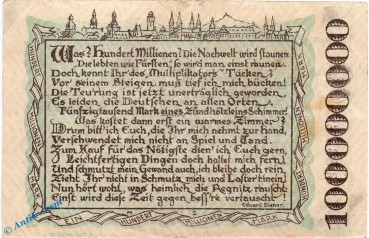 Was? Hundert Millionen? Die Nachwelt wird staunen.
Die lebten wie Fürsten, so wird man einst raunen.
Doch, kennt Ihr des „Multiplikators“ Tücken?
Vor seinem Steigen muß tief ich mich bücken.
Die Teurung ist jetzt unerträglich geworden.
Es leiden die Deutschen an allen Orten.
Fünfzigtausend Mark eines Zündhölzleins Schimmer!
Was kostet dann erst ein warmes Zimmer?
Drum bitt ich Euch, die Ihr mich nehmt zur hand,
Verschwendet mich nicht an Spiel und Tand.
Zum Kauf für das Nötigste dien' ich Euch gern,
Leichtfertigen Dingen doch haltet mich fern!
Und schmutzt mein Gewand auch, ich bleibe doch rein,
Zieht Ihr nicht in Schmutz mich und Laster hinein.
Nun hört wohl, was heimlich die Regnitz rauscht:
Einst wird diese Zeit gegen bess're vertauscht!
EIN HUNDERT MILLIONEN MARK
100000000